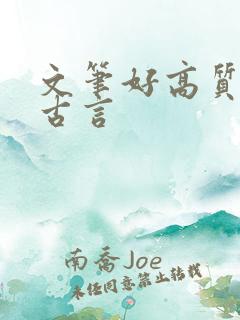 文筆好高質
古言
南喬Joe
未经同意禁止转载